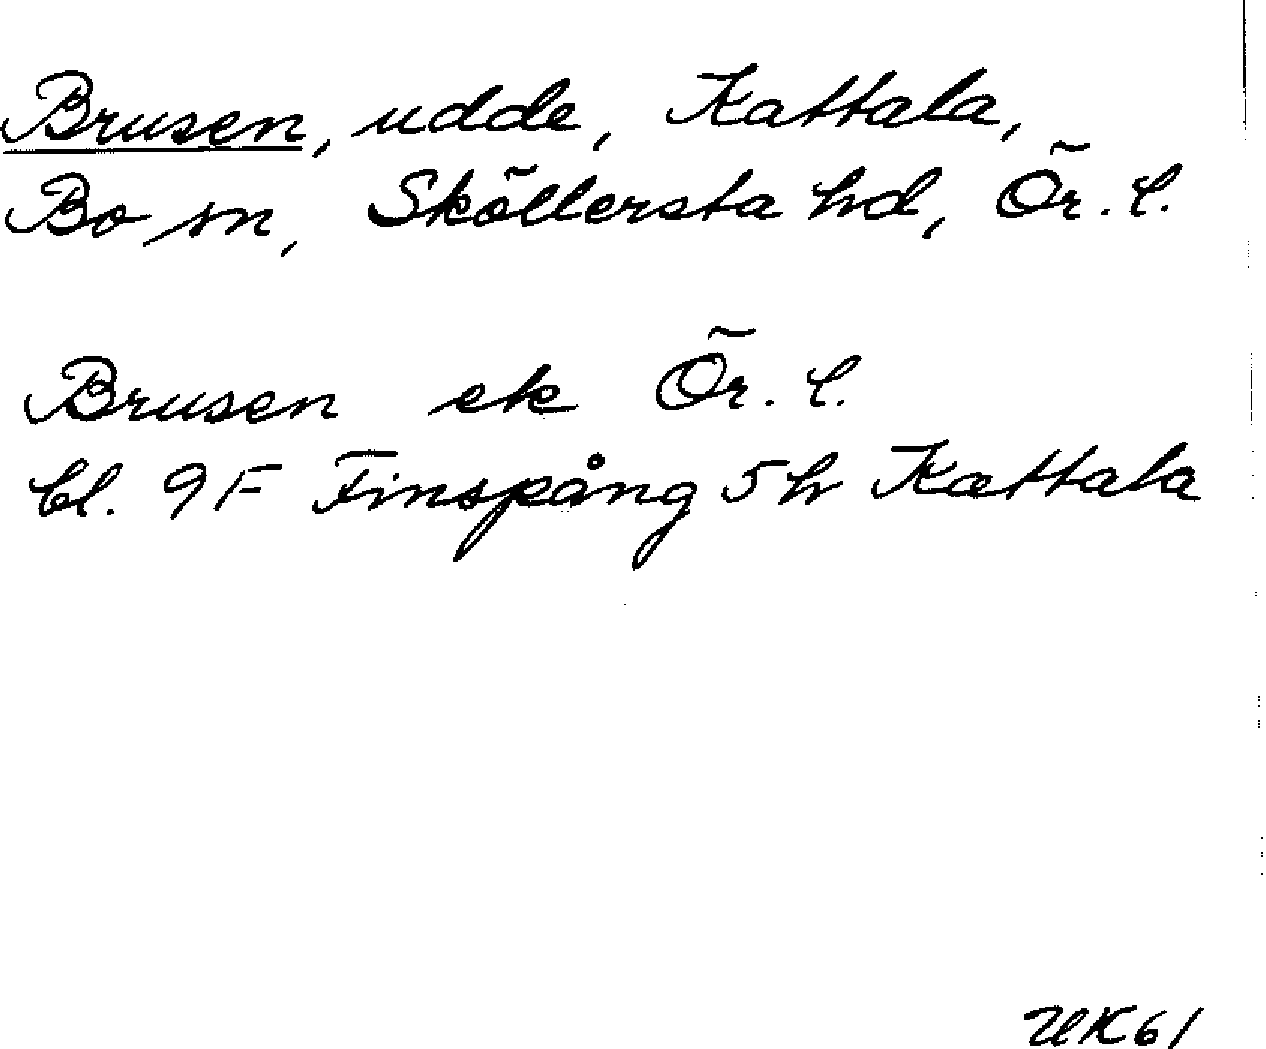 Brusen, udde, Kattala,
Bo sn, Sköllersta hd, Ör. l.
Brusen ek Ör. l.
bl. 9F Finspång 5h Kattala
UK61